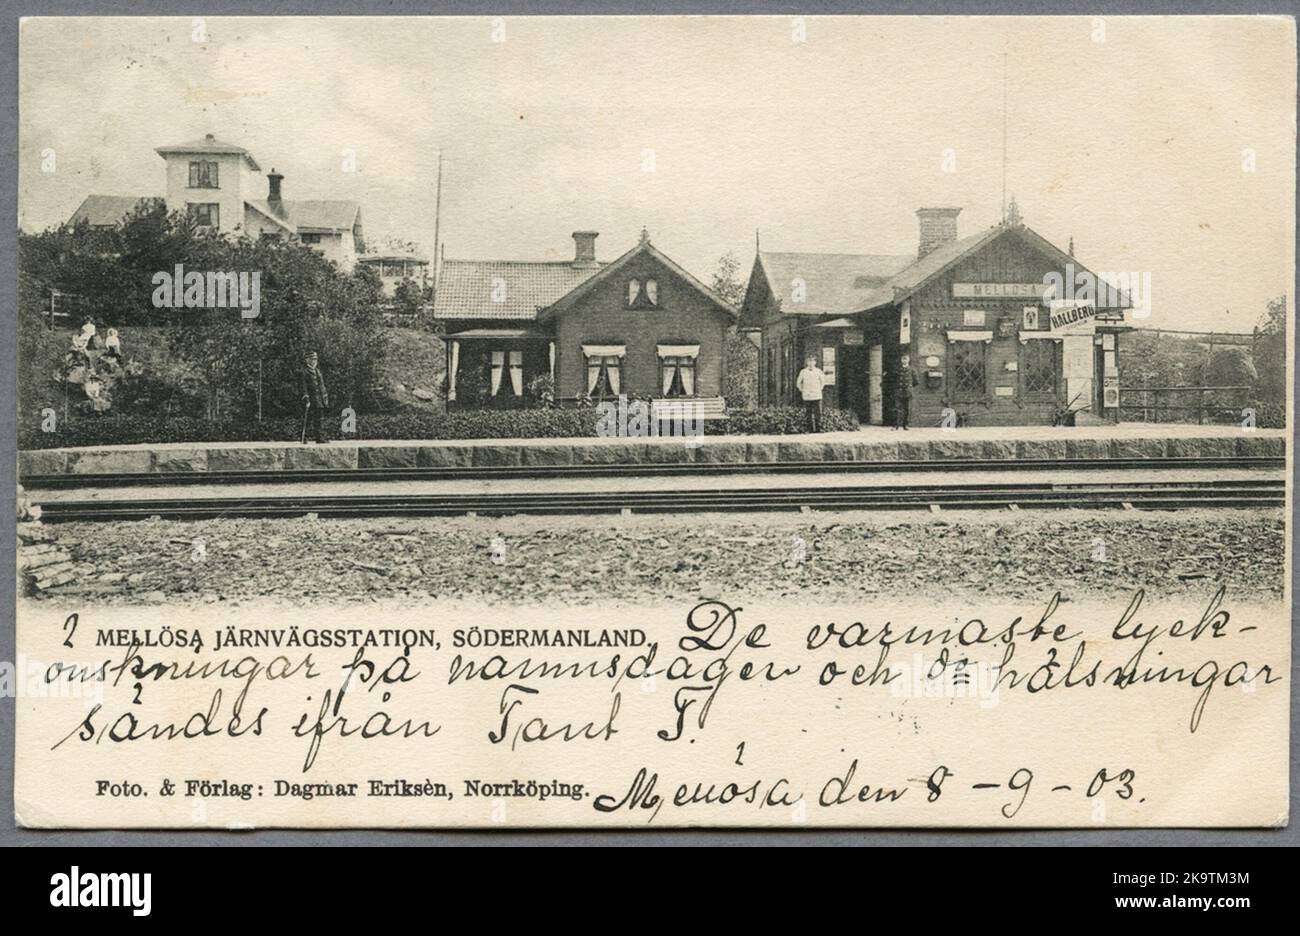 MELLÖSA
HALLBERG
MELLÖSA JÄRNVÄGSSTATION, SÖDERMANLAND. De varmaste lyck-
önskningar på namnsdagen och de hälsningar
sändes ifrån Tant T.
Foto. & Förlag: Dagmar Eriksèn, Norrköping.
Mellösa den 8 - 9 - 03.
alamy
Image ID: 2K9TM3M
www.alamy.com